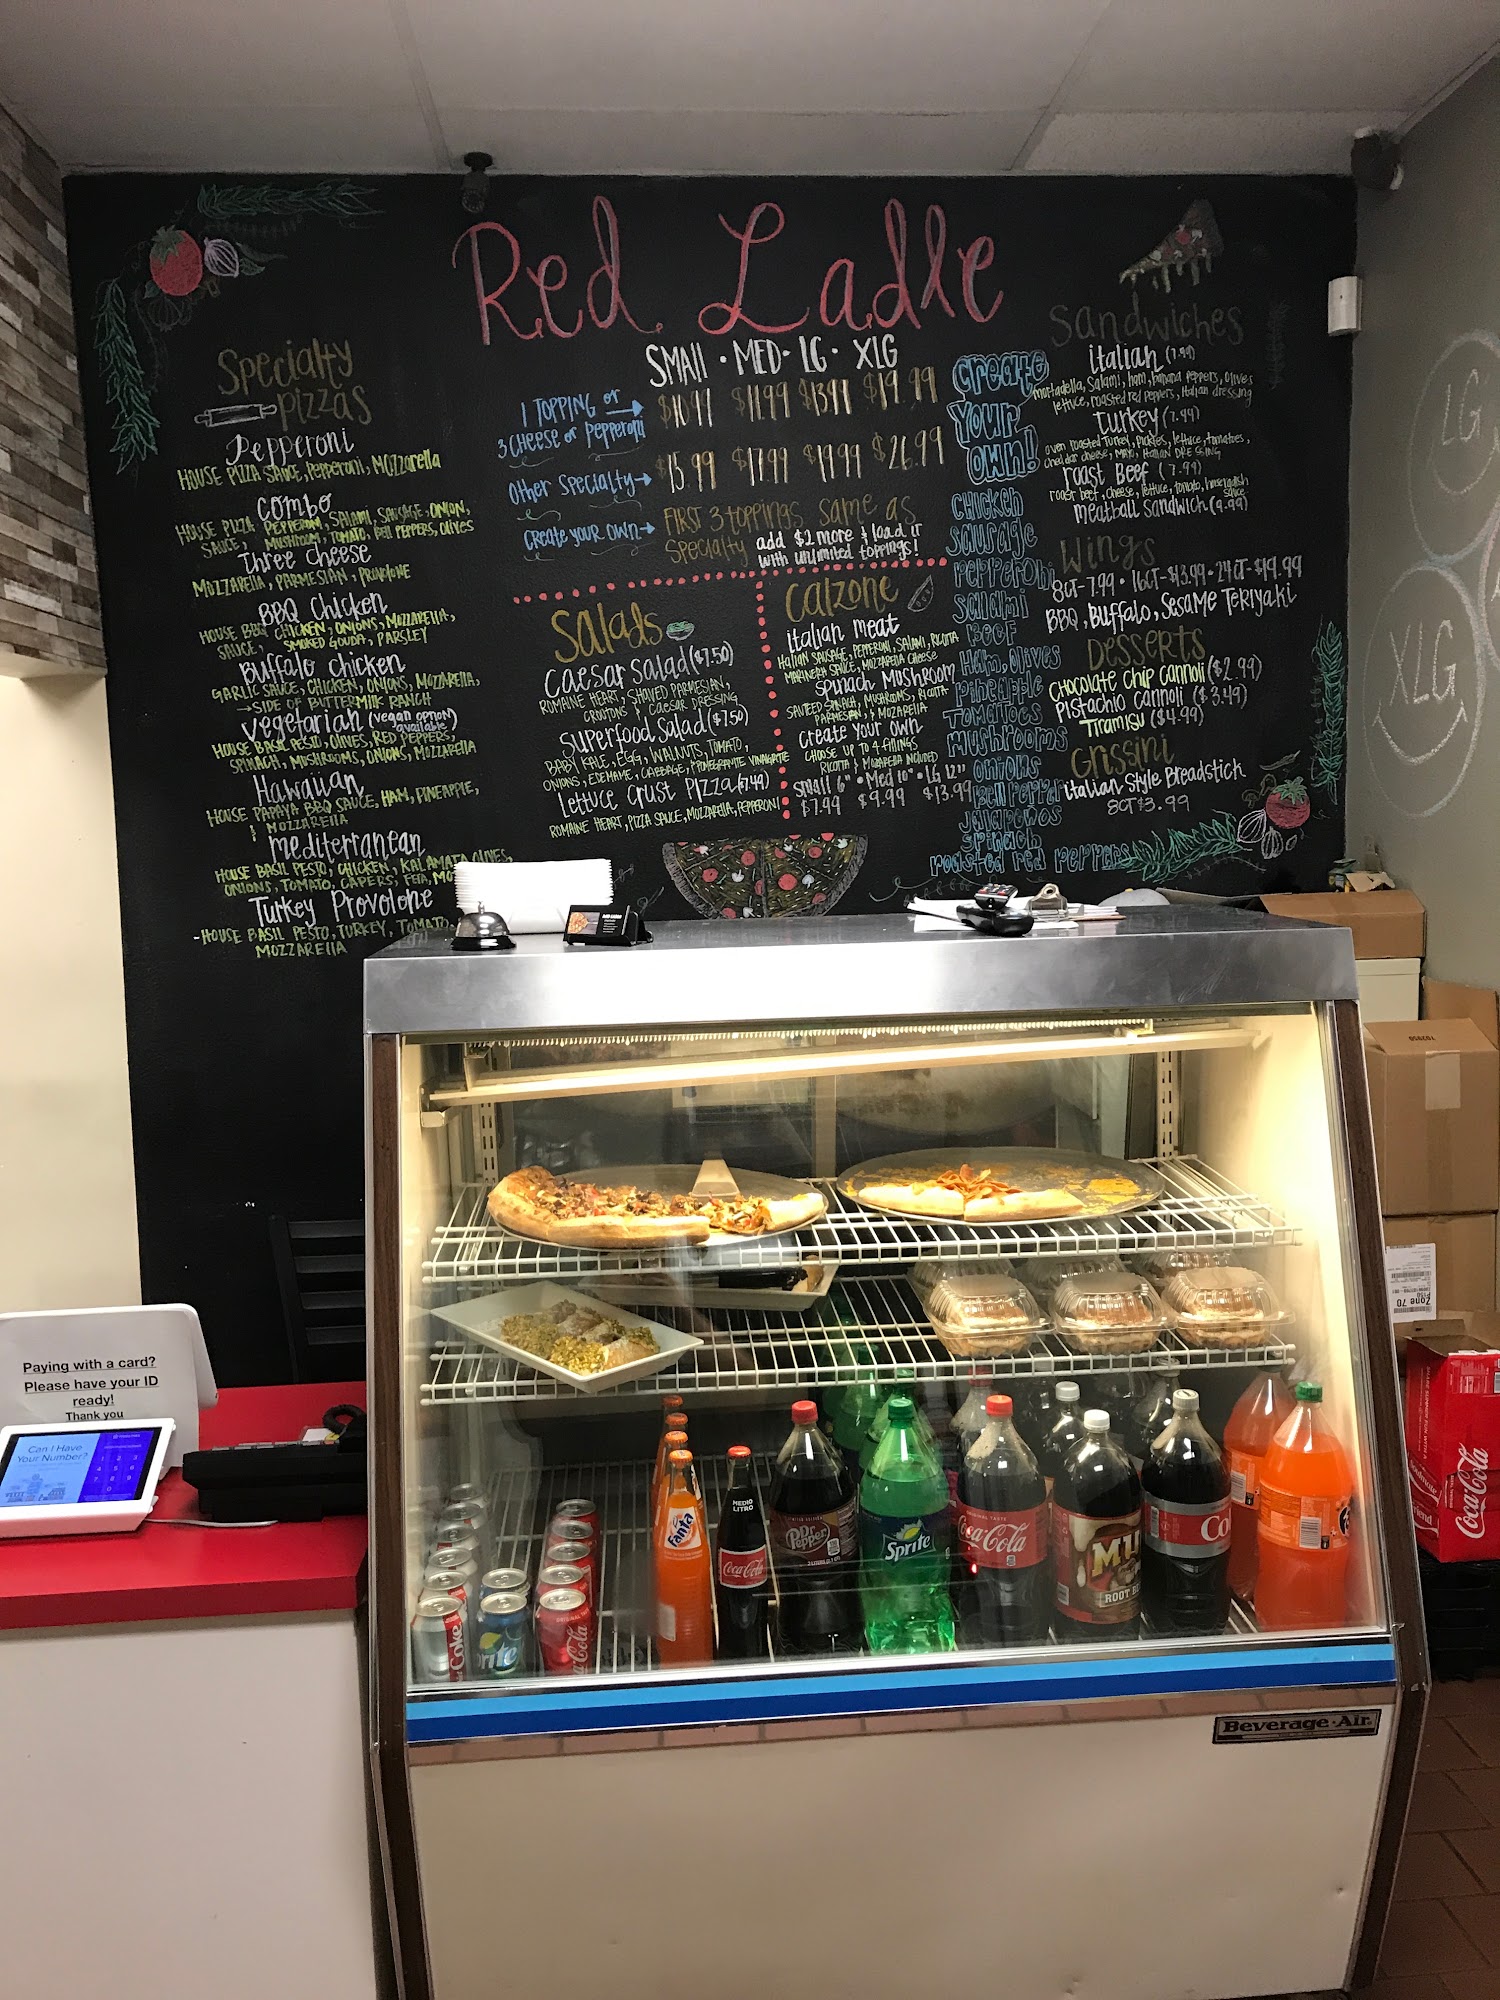 Red Ladle
Specialty
pizzas
Pepperoni
HOUSE PIZZA SAUCE, Pepperoni, MOZZarella
Combo
HOUSE PIZZA PEPPERONI, SALAMI, SAUSAGE, ONION,
SAUCE, MUSHROOM, TOMATO, BELL PEPPERS, OLIVES
Three Cheese
MOZZARELLA, PARMESIAN, PROVLONE
BBQ Chicken
HOUSE BBQ CHICKEN, ONIONS, MOZZARELLA,
SAUCE, SMOKED GOUDA, PARSLEY
Buffalo Chicken
GARLIC SAUCE, CHICKEN, ONIONS, MOZZARELLA,
→SIDE OF BUTTERMILK RANCH
Vegetarian (vegan option available)
HOUSE BASIL PESTO, OLIVES, RED PEPPERS,
SPINACH, MUSHROOMS, ONIONS, MOZZARELLA
Hawaiian
HOUSE PAPAYA BBQ SAUCE, HAM, PINEAPPLE,
& MOZZARELLA
mediterranean
HOUSE BASIL PESTO, CHICKEN, KALAMATA OLIVES,
ONIONS, TOMATO, CAPERS, FETA, MO
Turkey Provolone
-HOUSE BASIL PESTO, TURKEY, TOMATO,
MOZZARELLA
SMALL · MED · LG · XLG
1 TOPPING or → $10.99 $11.99 $13.99 $19.99
3 CHEESE or Pepperoni
Other Specialty→ $15.99 $17.99 $19.99 $26.99
Create your own→ FIRST 3 toppings same as
Specialty add $2 more & load it
with unlimited toppings!
Salads
Caesar Salad ($7.50)
ROMAINE HEART, SHAVED PARMESAN,
CROUTONS & CAESAR DRESSING
Superfood Salad ($7.50)
BABY KALE, EGG, WALNUTS, TOMATO,
ONIONS, EDEMAME, CABBAGE, POMEGRANTE VINAIGRATTE
Lettuce Crust Pizza (7.49)
ROMAINE HEART, PIZZA SAUCE, MOZZARELLA, PEPPERONI
Calzone
italian meat
ITALIAN SAUSAGE, PEPPERONI, SALAMI, RICOTTA
MARINERA SAUCE, MOZZARELLA CHEESE
Spinach Mushroom
SAUTEED SPINACH, MUSHROOMS, RICOTTA
PARMESAN, & MOZARELLA
create your own
CHOOSE UP TO 4 FILLINGS
RICOTTA & MOZARELLA INCLUDED
Small 6" · Med 10" · LG 12"
$7.99 $9.99 $13.99
Create
Your
Own!
Chicken
Sausage
pepperoni
Salami
Beef
Ham, Olives
pineapple
Tomatoes
mushrooms
onions
Bell Pepper
Jalapowos
Spinach
roasted red peppers
Sandwiches
italian (7.99)
mortadella, Salami, ham, banana peppers, olives
lettuce, roasted red peppers, Italian dressing
Turkey (7.99)
oven roasted Turkey, pickles, lettuce, tomatoes,
cheddar cheese, mayo, Italian DRESSING
roast Beef (7.99)
roast beef, cheese, lettuce, tomato, horseradish
sauce
meatball Sandwich (9.99)
Wings
8CT-7.99 · 16CT-$13.99 · 24CT-$19.99
BBQ, Buffalo, Sesame Teriyaki
Desserts
Chocolate chip cannoli ($2.99)
Pistachio cannoli ($3.49)
Tiramisu ($4.99)
Grissini
italian Style Breadstick
8CT $3.99
LG
XLG
Paying with a card?
Please have your ID
ready!
Thank you
Can I Have
Your Number?
Zone 70
MEDIO
LITRO
Fanta
Coca-Cola
Dr Pepper
Sprite
ORIGINAL TASTE
Coca-Cola
MU
ROOT B
Co
Coke
rite
Coca-Cola
Coca-Cola
Beverage-Air